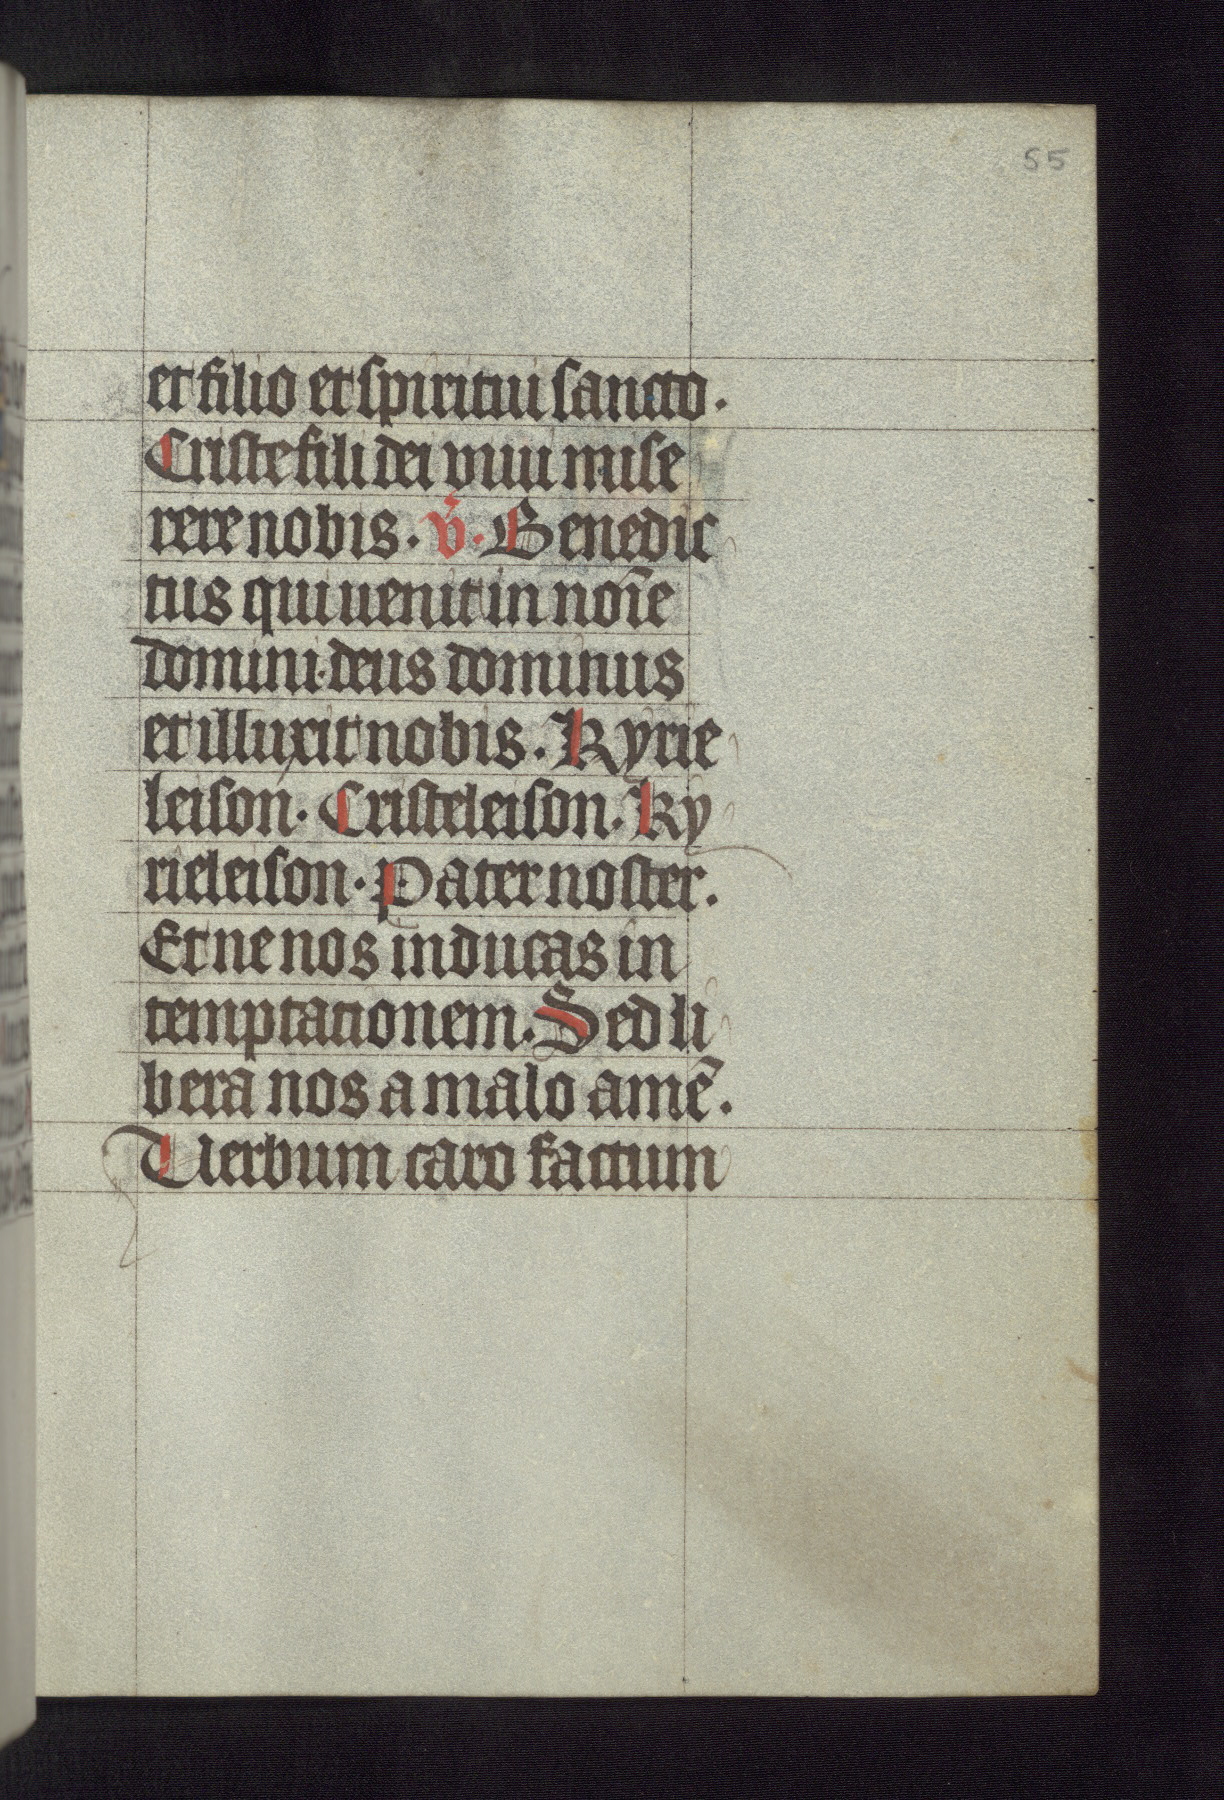 55
et filio et spiritui sancto.
Criste fili dei viui mise
rere nobis. v̄. Benedic
tus qui uenit in noīe
domini. deus dominus
et illuxit nobis. Kyrie
leison. Cristeleison. Ky
rieleison. Pater noster.
Et ne nos inducas in
temptationem. Sed li
bera nos a malo amē.
Uerbum caro factum